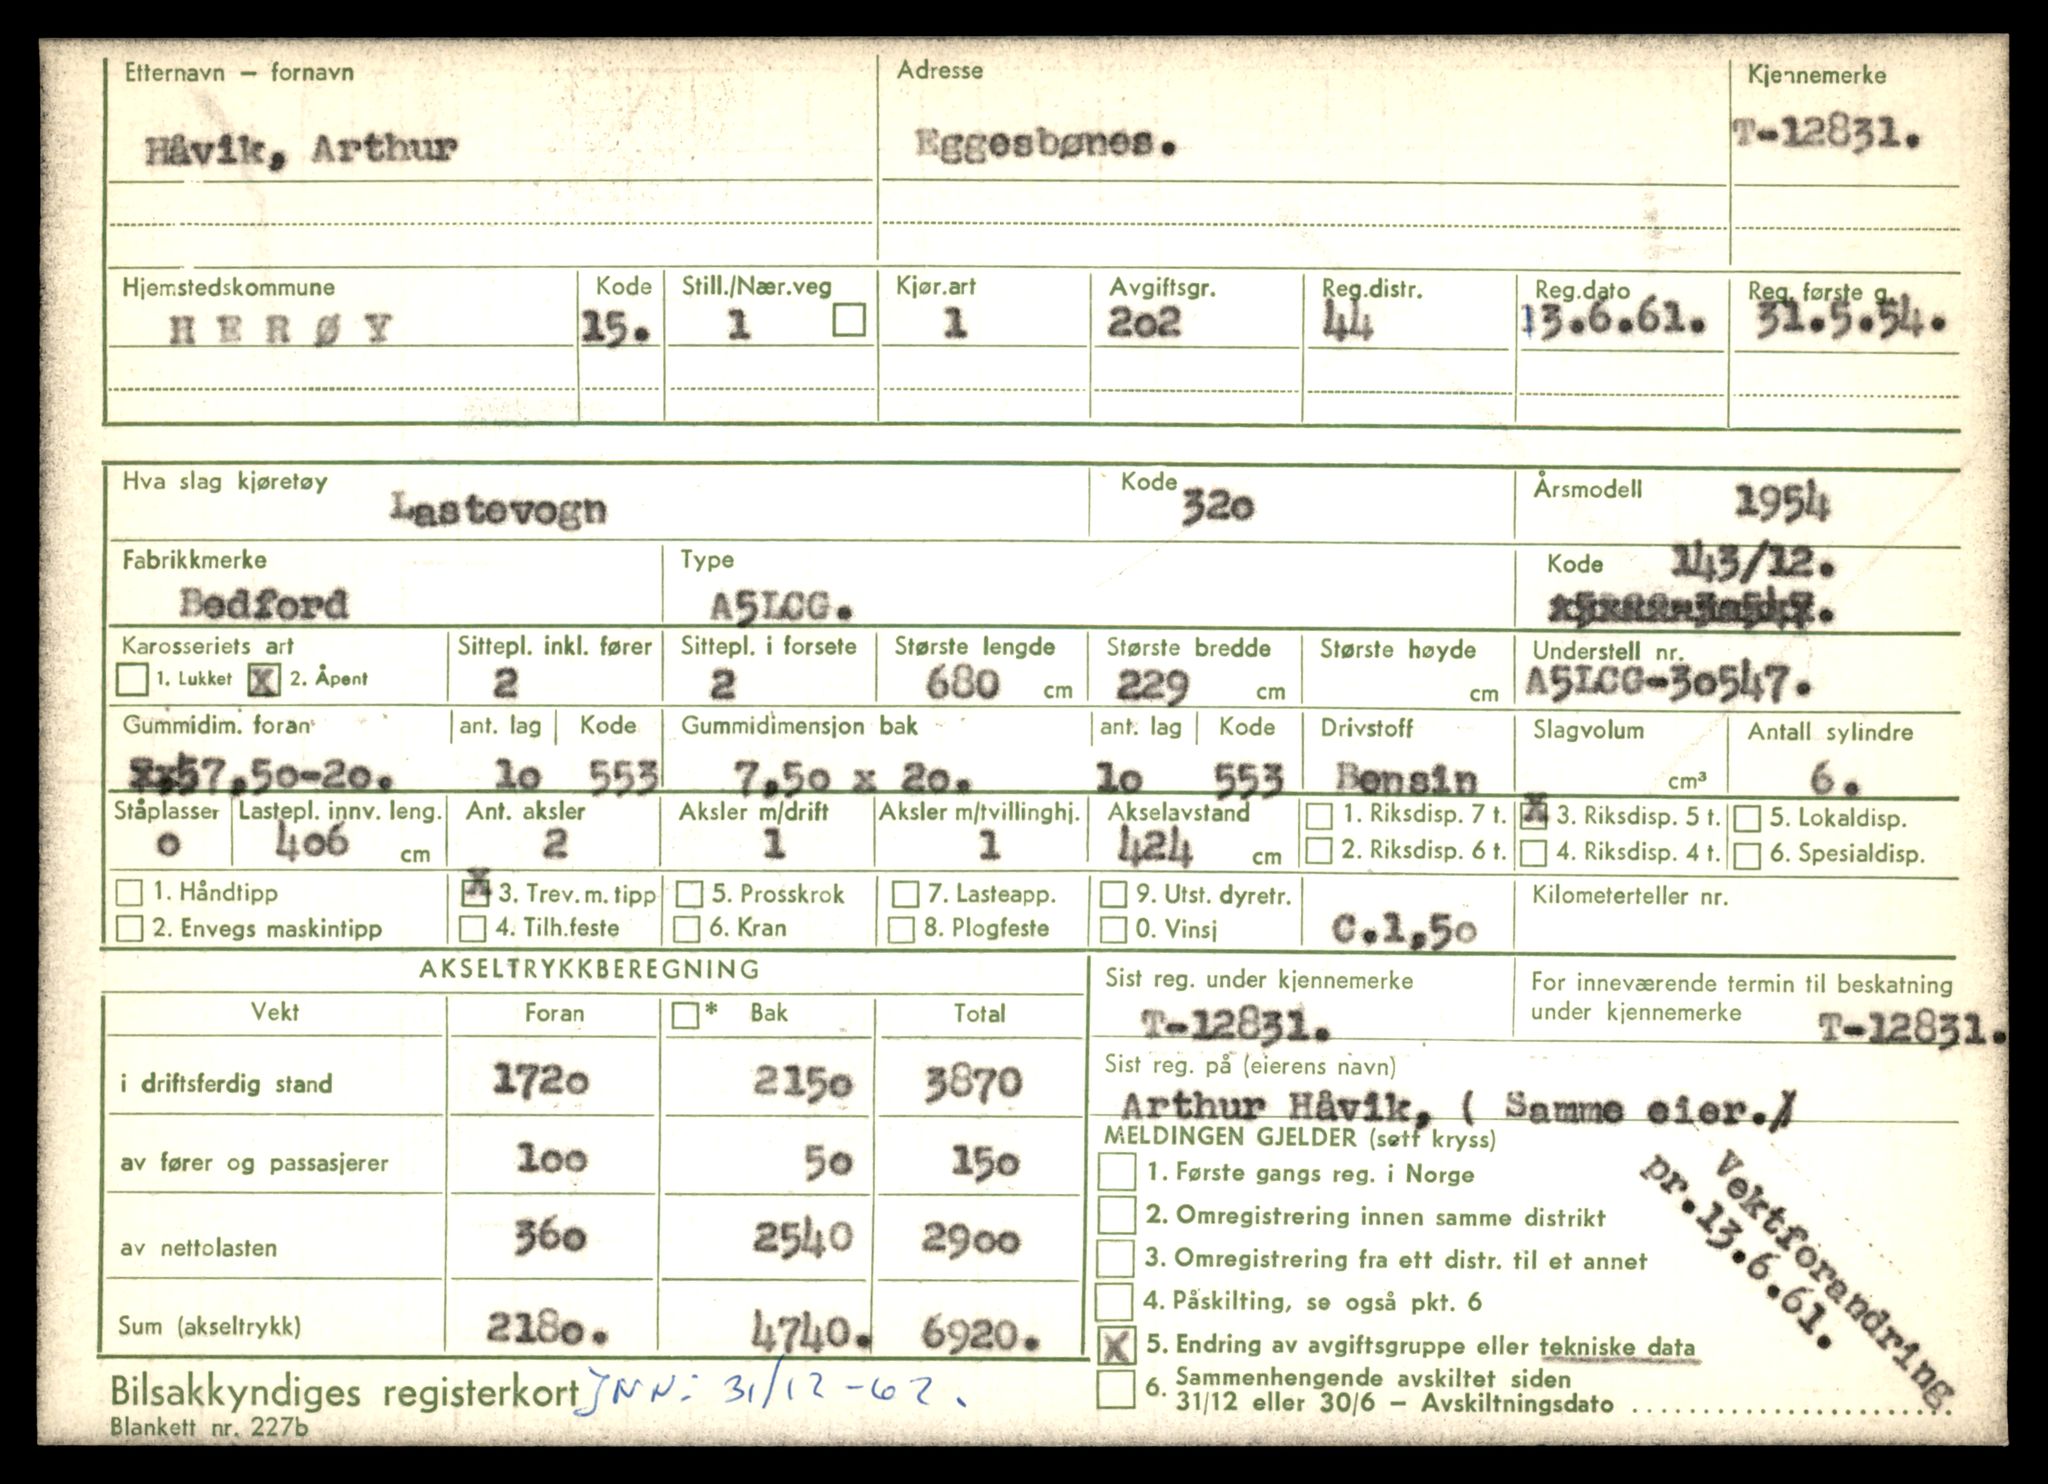 Etternavn – fornavn Adresse Kjennemerke
Håvik, Arthur Eggesbønes. T-12831.
Hjemstedskommune Kode Still./Nær.veg Kjør.art Avgiftsgr. Reg.distr. Reg.dato Reg. første g.
HERØY 15. 1 1 202 44 13.6.61. 31.5.54.
Hva slag kjøretøy Lastevogn Kode 320 Årsmodell 1954
Fabrikkmerke Type Kode 143/12.
Bedford A5LCG.
Karosseriets art Sittepl. inkl. fører Sittepl. i forsete Største lengde Største bredde Største høyde Understell nr.
1. Lukket X 2. Åpent 2 2 680 cm 229 cm cm A5LCG-30547.
Gummidim. foran ant. lag Kode Gummidimensjon bak ant. lag Kode Drivstoff Slagvolum Antall sylindre
7,50-20. 10 553 7,50 x 20. 10 553 Bensin cm³ 6.
Ståplasser Lastepl. innv. leng. Ant. aksler Aksler m/drift Aksler m/tvillinghj. Akselavstand 1. Riksdisp. 7 t. X 3. Riksdisp. 5 t. 5. Lokaldisp.
0 406 cm 2 1 1 424 cm 2. Riksdisp. 6 t. 4. Riksdisp. 4 t. 6. Spesialdisp.
1. Håndtipp X 3. Trev. m. tipp 5. Prosskrok 7. Lasteapp. 9. Utst. dyretr. Kilometerteller nr.
2. Envegs maskintipp 4. Tilh.feste 6. Kran 8. Plogfeste 0. Vinsj C.1,50
AKSELTRYKKBEREGNING
Vekt Foran * Bak Total
i driftsferdig stand 1720 2150 3870
av fører og passasjerer 100 50 150
av nettolasten 360 2540 2900
Sum (akseltrykk) 2180. 4740. 6920.
Sist reg. under kjennemerke
T-12831.
For inneværende termin til beskatning
under kjennemerke T-12831.
Sist reg. på (eierens navn)
Arthur Håvik, ( Samme eier.)
MELDINGEN GJELDER (sett kryss)
1. Første gangs reg. i Norge
2. Omregistrering innen samme distrikt
3. Omregistrering fra ett distr. til et annet
4. Påskilting, se også pkt. 6
X 5. Endring av avgiftsgruppe eller tekniske data
6. Sammenhengende avskiltet siden
31/12 eller 30/6 – Avskiltningsdato ........................
Vektforandring
pr.13.6.61.
Bilsakkyndiges registerkort JNN: 31/12-62.
Blankett nr. 227b